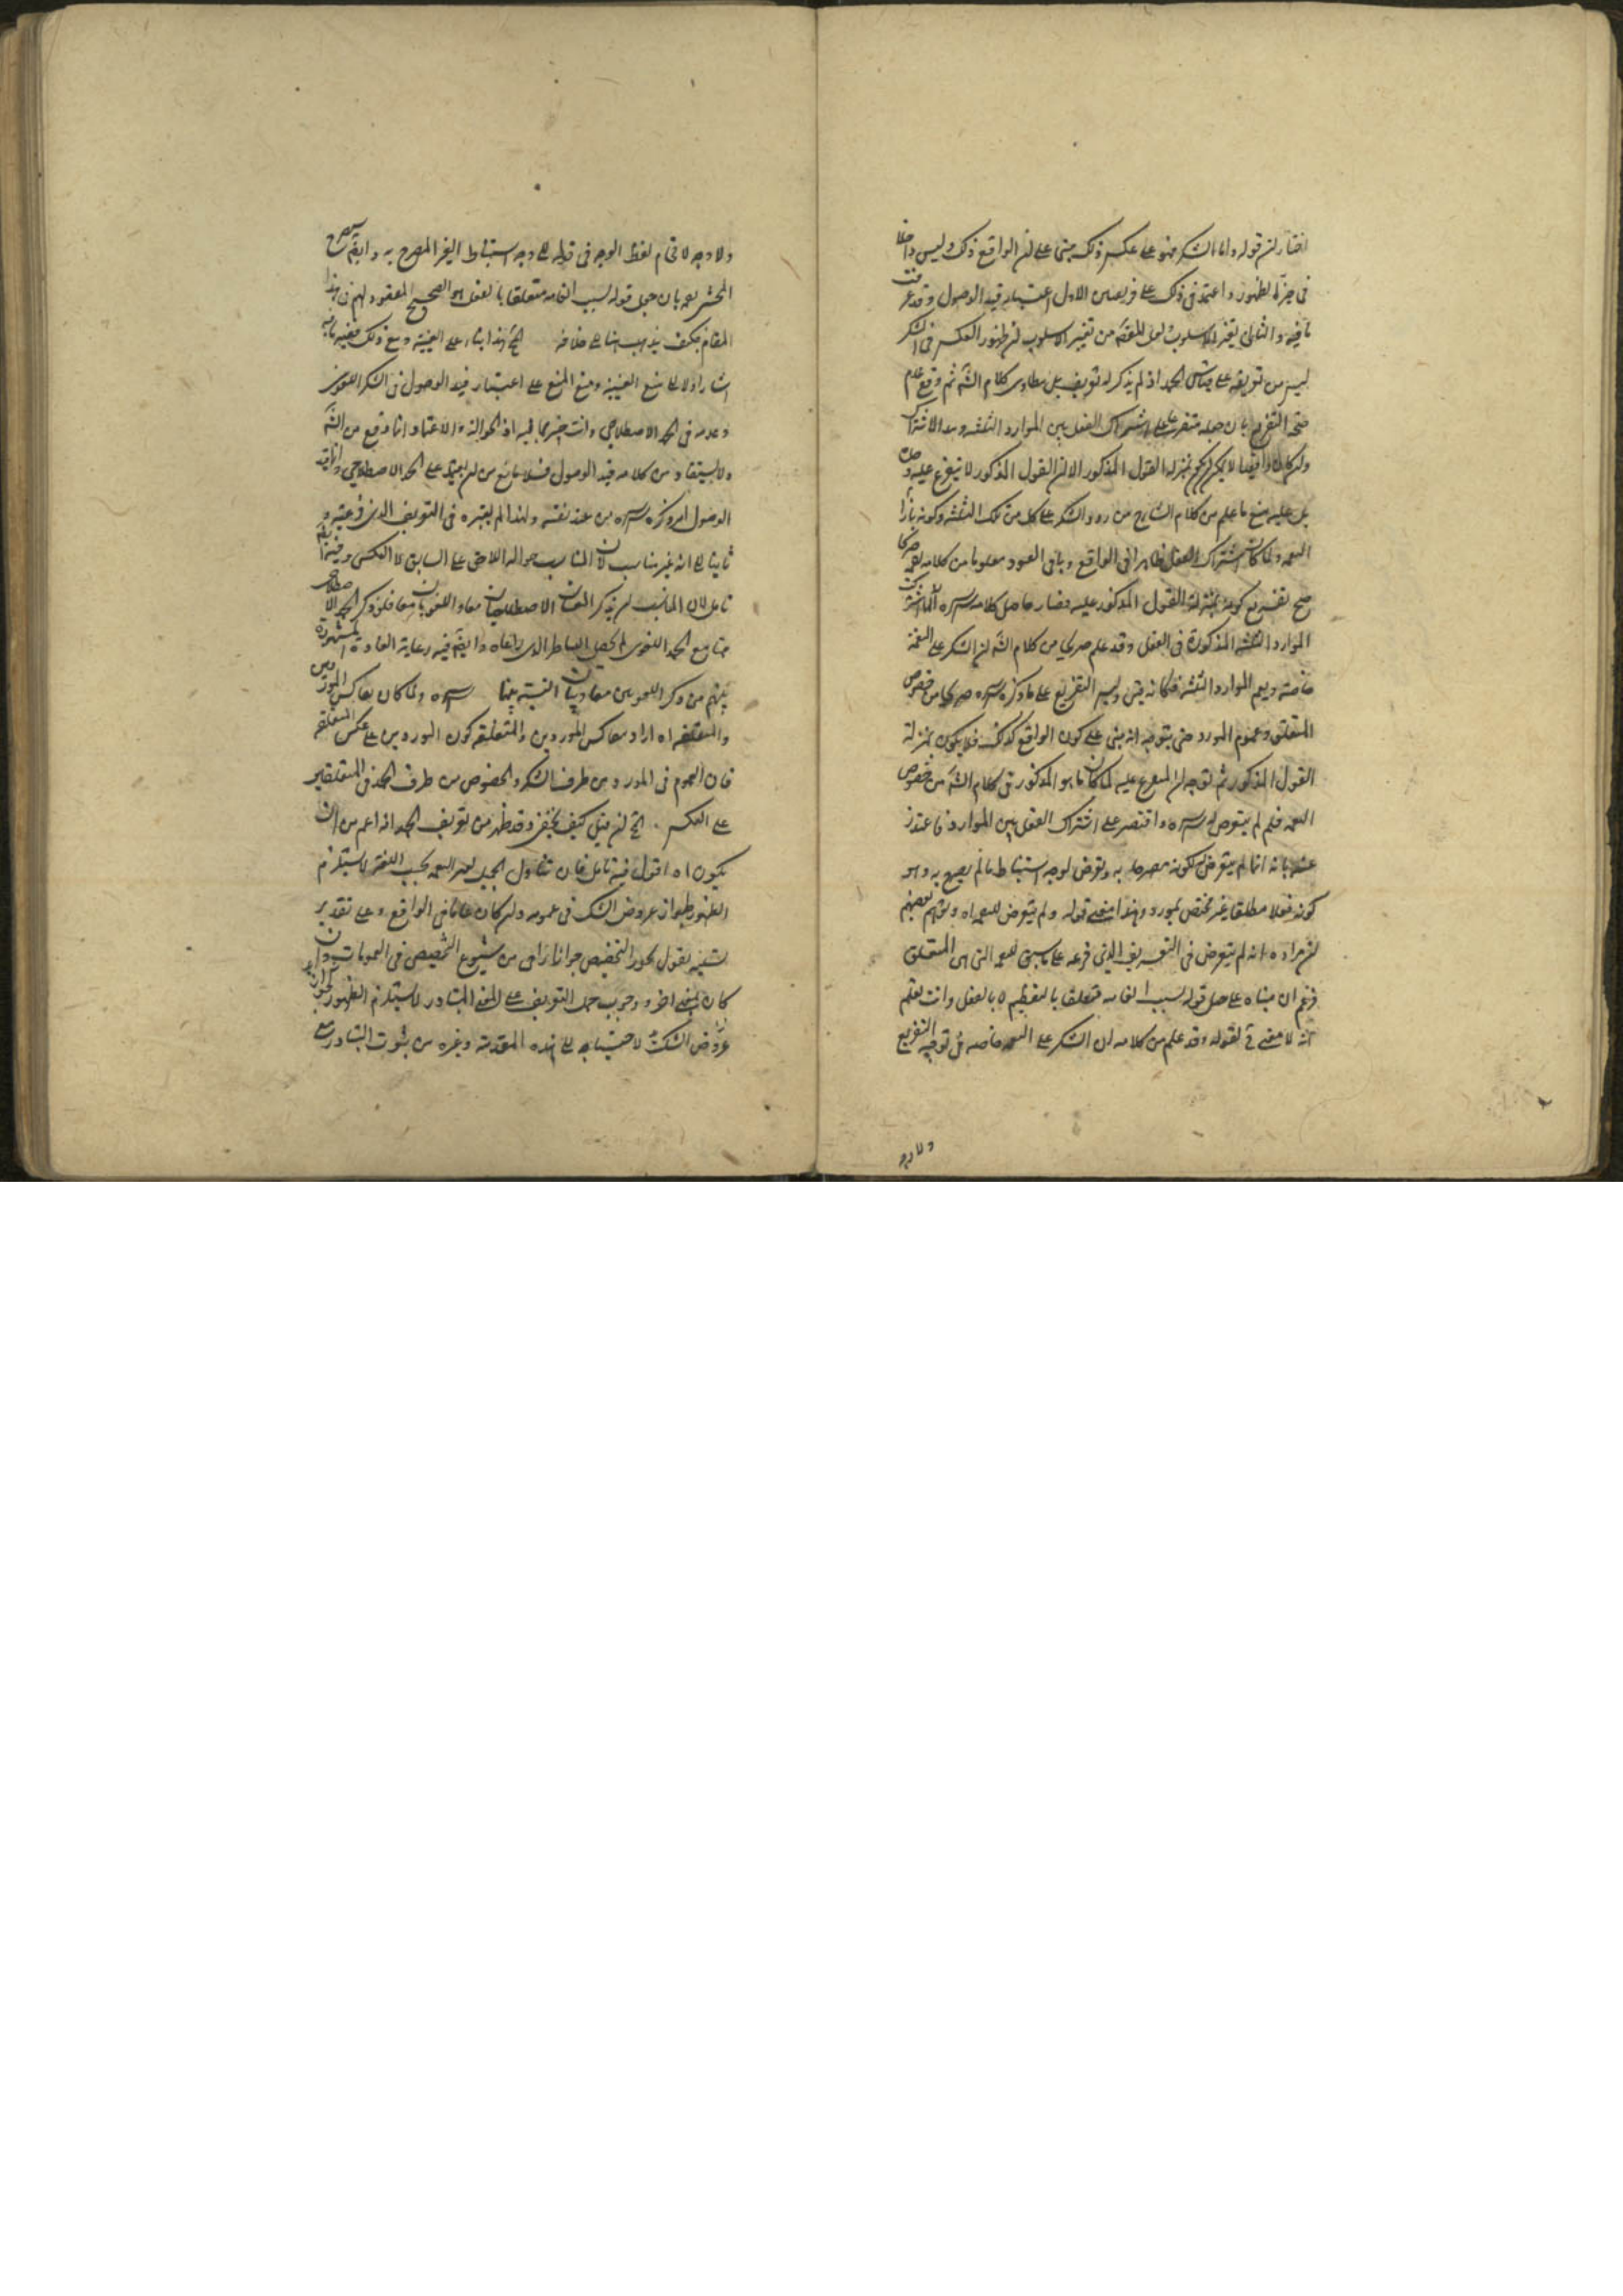 اختار ان قوله واما الشكر فهو على عكس ذلك مبنى على ان الواقع ذلك وليس داخلا
فى حيز لظهور واعتمد فى ذلك على قرينتين الاول اعتبار قيد الوصول وقد عرفت
ما فيه والثانى تغير الاسلوب من تغيير الاسلوب ان ظهور العكس فى الشكر
ليس من تعريفه على قياس الحمد اذ لم يذكر له تعريف بل مطاوى كلام الشَّ ثم وقع عدم
صحة التفريع بان جعله متفرعا على اشتراك الفعل بين الموارد الثلثة وهذا الاشتراك
وان كان واقعا لا يمكن ان يكون بمنزلة القول المذكور الا ان القول المذكور لا يتفرع عليه وحده
بل عليه مع ما علم من كلام الشارح من ورود الشكر على كل من تلك الثلثة وكونه بازاء
النعمة ولما كان اشتراك الفعل ظاهرا فى الواقع وباقى القيود معلوما من كلامه صريحا
صح تفريع كونه بمنزلة القول المذكور عليه فصار حاصل كلامه سره انه لما اشتركت
الموارد الثلثة المذكورة فى الفعل وقد علم صريحا من كلام الشَّ ان الشكر على النعمة
خاصة ويعم الموارد الثلثة فكانه قيل وليس التفريع على ما ذكره سره صريحا من خصوص
المتعلق وعموم المورد حتى يتوجه انه مبنى على كون الواقع كذلك فلا يكون بمنزلة
القول المذكور ثم لتوجه ان المتفرع عليه لما كان ما هو المذكور فى كلام الشَّ من خصوص
النعمة فلم لم يتعرض له سره واقتصر على اشتراك الفعل بين الموارد فاعتذر
عنه بانه انما لم يتعرض لكونه مصرحا به وتعرض لوجه استنباط ما لم يصرح به وهو
كونه فعلا مطلقا غير مختص بمورد وهذا معنى قوله ولم يتعرض للنعمة اه وتوهم بعضهم
ان مراده انه لم يتعرض فى التعريف الذى فرعه على ما سبق للنعمة التى هى المتعلق
فزعم ان مبناه على جعل قوله بسبب انعامه متعلقا بالتعظيم لا بالفعل وانت تعلم
انه لا معنى ح لقوله وقد علم من كلامه ان الشكر على النعمة خاصة فى توجيه التفريع
ولا وجه
ولا وجه لاقحام لفظ الوجه فى قوله الى وجه استنباط الغير المصرح به وايضَ صرح
المحشى بعده بان جعل قوله بسبب انعامه متعلقا بالفعل هو الصحيح المقصود لهم فى هذا
المقام فكيف يذهب هنا الى خلافه الخ هذا بناء على العينية ومع ذلك ففيه ما فيه
اشار اولا الى منع العينية ومنع المنع على اعتبار قيد الوصول فى الشكر اللغوى
وعدمه فى الحمد الاصطلاحى وانت خبير بما فيه اذ الحوالة والاعتماد انما وقع من الشَّ
ولا يستفاد من كلامه قيد الوصول فلا مانع من ان يعتمد على الحمد الاصطلاحى وانما قيد
الوصول امر ذكره سره من عند نفسه ولهذا لم يعتبره فى التعريف الذى فرعه
ثانيا الى انه غير مناسب لان المناسب حوالة اللاحق على السابق لا العكس وفيه ايضَ
تامل لان المناسب ان يذكر المعنيان الاصطلاحيان معا واللغويان معا فلو ذكر الحمد الاصطلاحى
متابع الحمد اللغوى لم يحصل التناظر الذى راعاه وايضَ فيه رعاية العادة المشهورة
بينهم من ذكر اللغويين معا وبيان النسبة بينهما سره ولما كان تعاكس الموردين
والمتعلقين اه اراد بتعاكس الموردين والمتعلقين كون الموردين على عكس المتعلقين
فان العموم فى الموردين من طرف الشكر والخصوص من طرف الحمد وفى المتعلقين
على العكس الخ ان قيل كيف يخفى وقد ظهر من تعريف الحمد انه اعم من ان
يكون اه اقول فيه تامل فان تناول الجميل لغير النعمة بحسب اللغة لا يستلزم
الظهور لجواز عروض الشك فى عمومه وان كان عاما فى الواقع وعلى تقدير
تسليمه نقول يجوز التخصيص جوازا راجحا من شيوع التخصيص فى العمومات وان
كان بمعنى اخر ووجوب حمل التعريف على المعنى المتبادر لا يستلزم الظهور لجواز
عروض الشك لاحتياجه الى هذه المقدمة وغيره من ثبوت التبادر مع